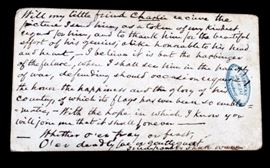 Will my little friend Charlie receive the
picture I send him, as a token of my kindest
regard for him, and to thank him for the beautiful
effort of his genius, alike honorable to his head
and heart — I believe it is the harbinger
of the future, when I shall see him in the
of war, defending should occasion require
the honor the happiness and the glory of his
country, of which its flag has ever been so
With the hope, in which I know you
will join me that it should
or feast,
O'er deadly